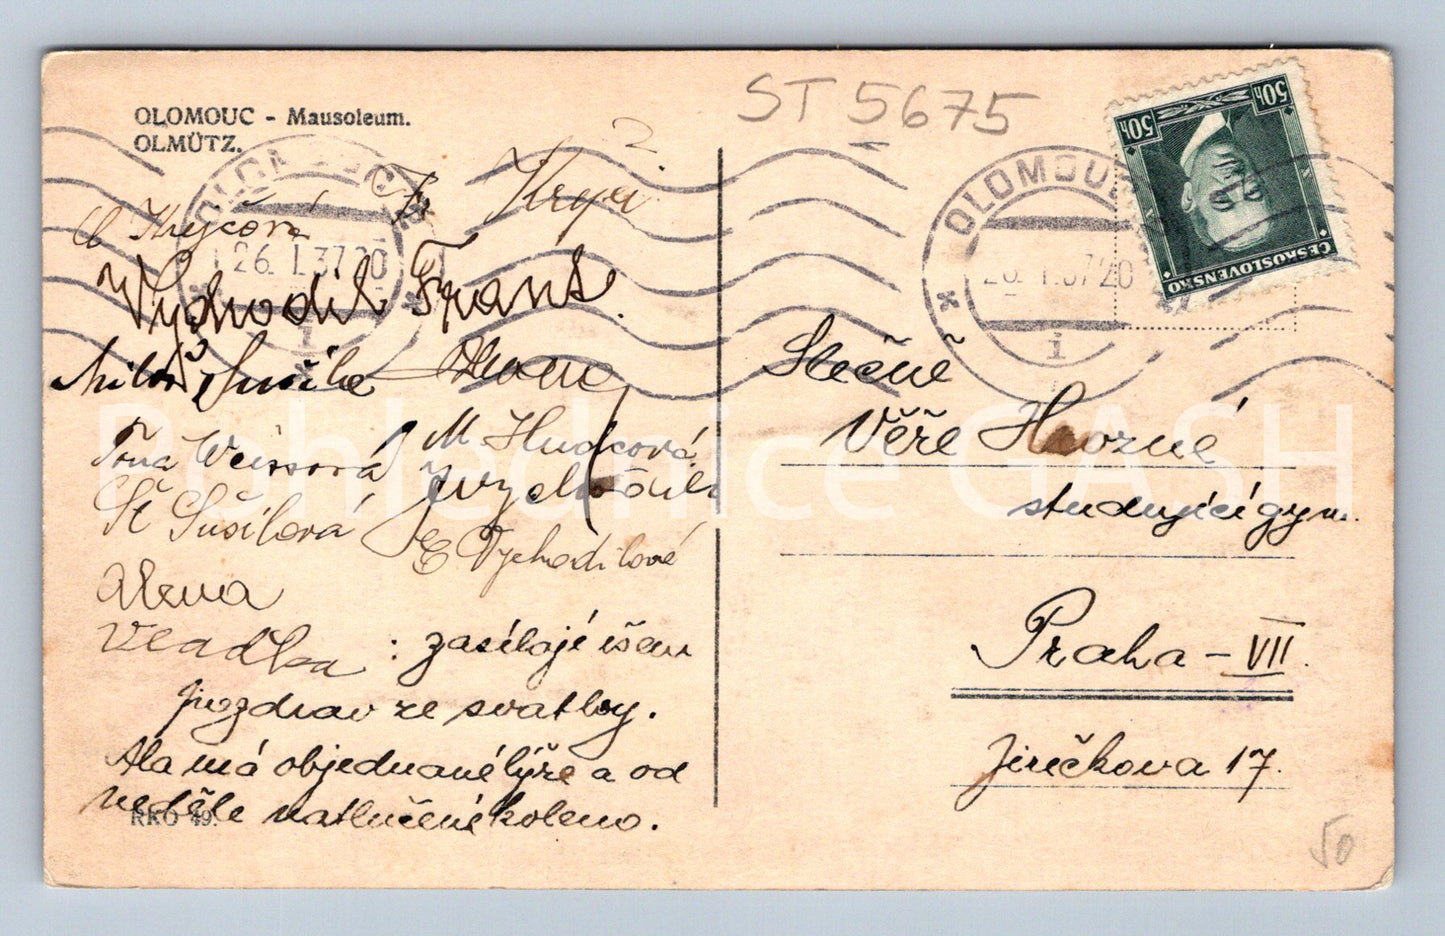 OLOMOUC - Mausoleum.
OLMÜTZ.
ST 5675
2.
OLOMOUC
26. I. 37 20
1
OLOMOUC
26. I. 37 20
1
50h 50h
ČESKOSLOVENSKO
Krejčová
Vychodil Frant.
Sušila
Tona Weissová M Hudcová
Vychodil
Sušilová
E Vychodilové
Alena
Vladka : zasílají všem
pozdrav ze svatby.
Ala má objednané lýže a od
neděle natlučené koleno.
RKO 49.
Slečně
Věře Hrozné
studující gym.
Praha - VII.
Jirečkova 17.
50
Pohlednice GASH